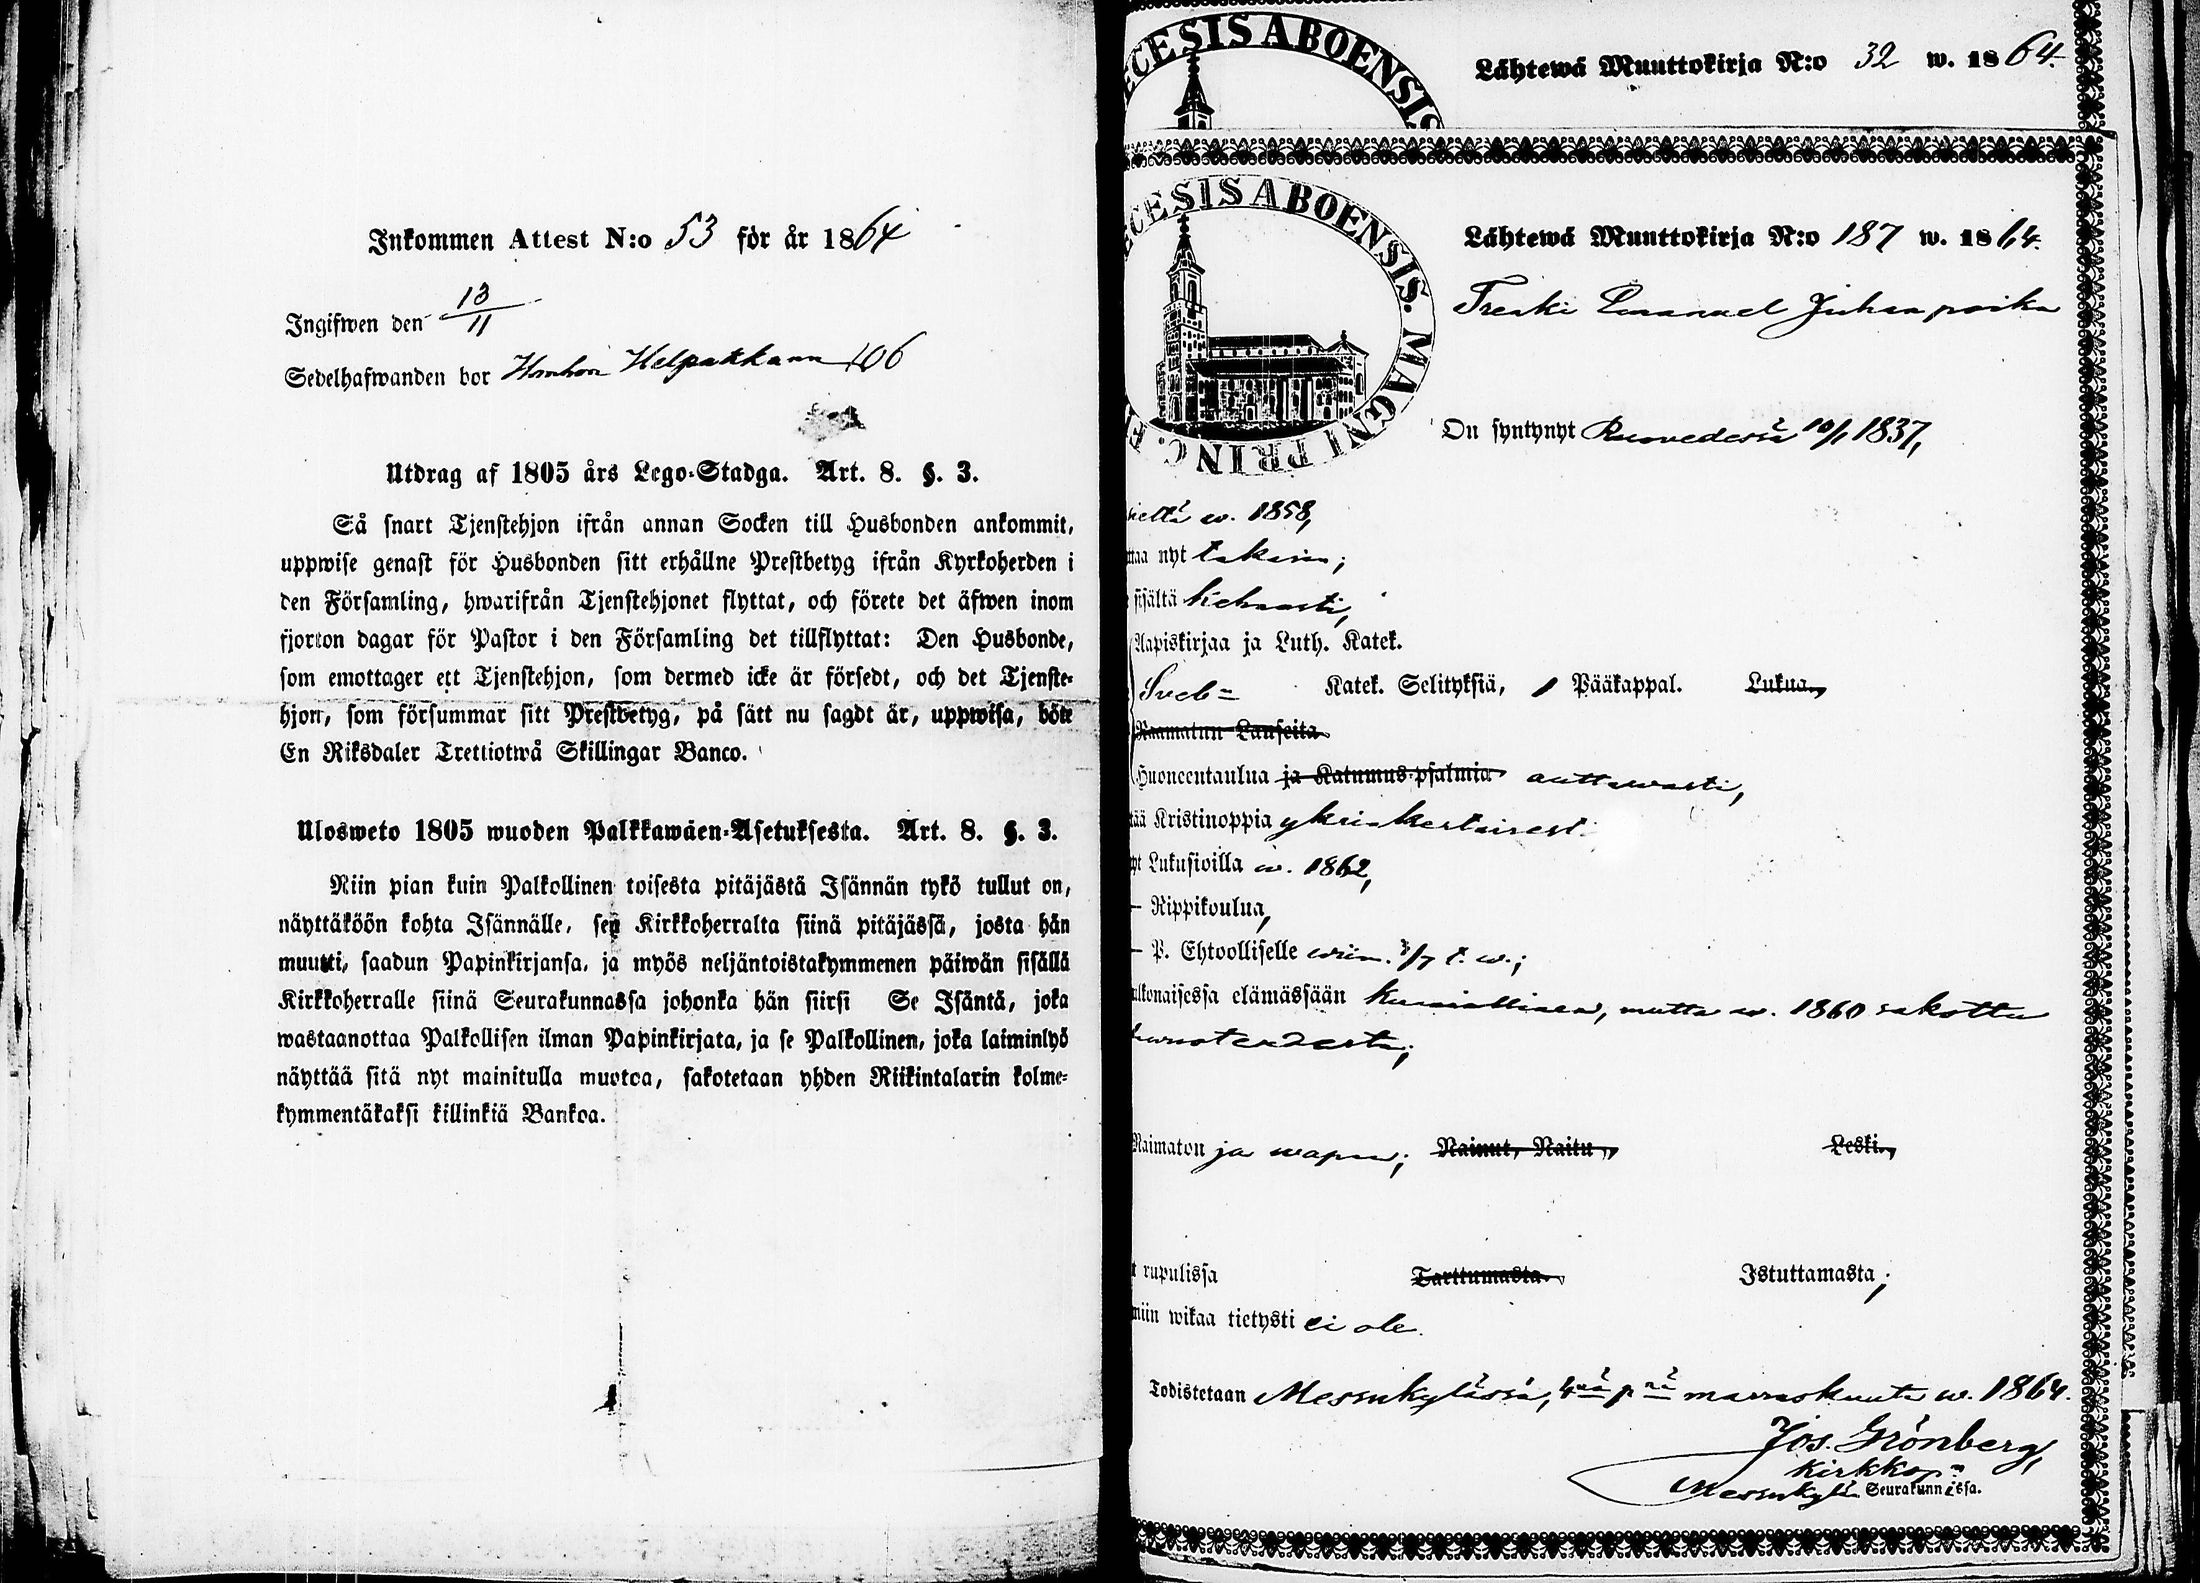 Inkommen Attest N:o 53 för år 1864
Ingifwen den 13/11
Sedelhafwanden bor 106
Utdrag af 1805 års Lego-Stadga. Art. 8. §. 3.
Så snart Tjenstehjon ifrån annan Socken till Husbonden ankommit,
uppwise genast för Husbonden sitt erhållne Prestbetyg ifrån Kyrkoherden i
den Församling, hwarifrån Tjenstehjonet flyttat, och förete det äfwen inom
fjorton dagar för Pastor i den Församling det tillflyttat: Den Husbonde,
som emottager ett Tjenstehjon, som dermed icke är försedt, och det Tjenste-
hjon, som försummar sitt Prestbetyg, på sätt nu sagdt är, uppwisa, böte
En Riksdaler Trettiotwå Skillingar Banco.
Ulosweto 1805 wuoden Palkkawäen-Asetuksesta. Art. 8. §. 3.
Niin pian kuin Palkollinen toisesta pitäjästä Isännän tykö tullut on,
näyttäköön kohta Isännälle, sen Kirkkoherralta siinä pitäjässä, josta hän
muutti, saadun Papinkirjansa, ja myös neljäntoistakymmenen päiwän sisällä
Kirkkoherralle siinä Seurakunnassa johonka hän siirsi Se Isäntä, joka
wastaanottaa Palkollisen ilman Papinkirjata, ja se Palkollinen, joka laiminlyö
näyttää sitä nyt mainitulla muotoa, sakotetaan yhden Riikintalarin kolme-
kymmentäkaksi killinkiä Bankoa.
ECESIS ABOENSIS
Lähtewä Muuttokirja N:o 32 w. 1864.
ECESIS ABOENSIS. MAGNI PRINC. F
Lähtewä Muuttokirja N:o 187 w. 1864.
Emanuel Juhanpoika
On syntynyt Ruovedessä 10/1 1837,
w. 1858,
maa nyt takasin;
sisältä kehnosti,
Aapiskirjaa ja Luth. Katek.
Sveb= Katek. Selityksiä, 1 Pääkappal. Lukua,
Raamatun Lauseita
Huoneentaulua ja Katumus-psalmia auttawasti,
tää Kristinoppia yksinkertaisest.
yt Lukusioilla w. 1862,
— Rippikoulua,
— P. Ehtoolliselle wiim. 3/7 t. w.;
ulkonaisessa elämässään kunniallinen, mutta w. 1860 sakotettu
Naimaton ja wapaa; Nainut, Naitu, Leski,
t rupulissa Tarttumasta Istuttamasta;
miin wikaa tietysti ei ole.
Todistetaan Messukylässä, 4nä pnä marraskuuta w. 1864.
Jos. Grönberg,
Kirkkop.
Messukylä Seurakunnissa.